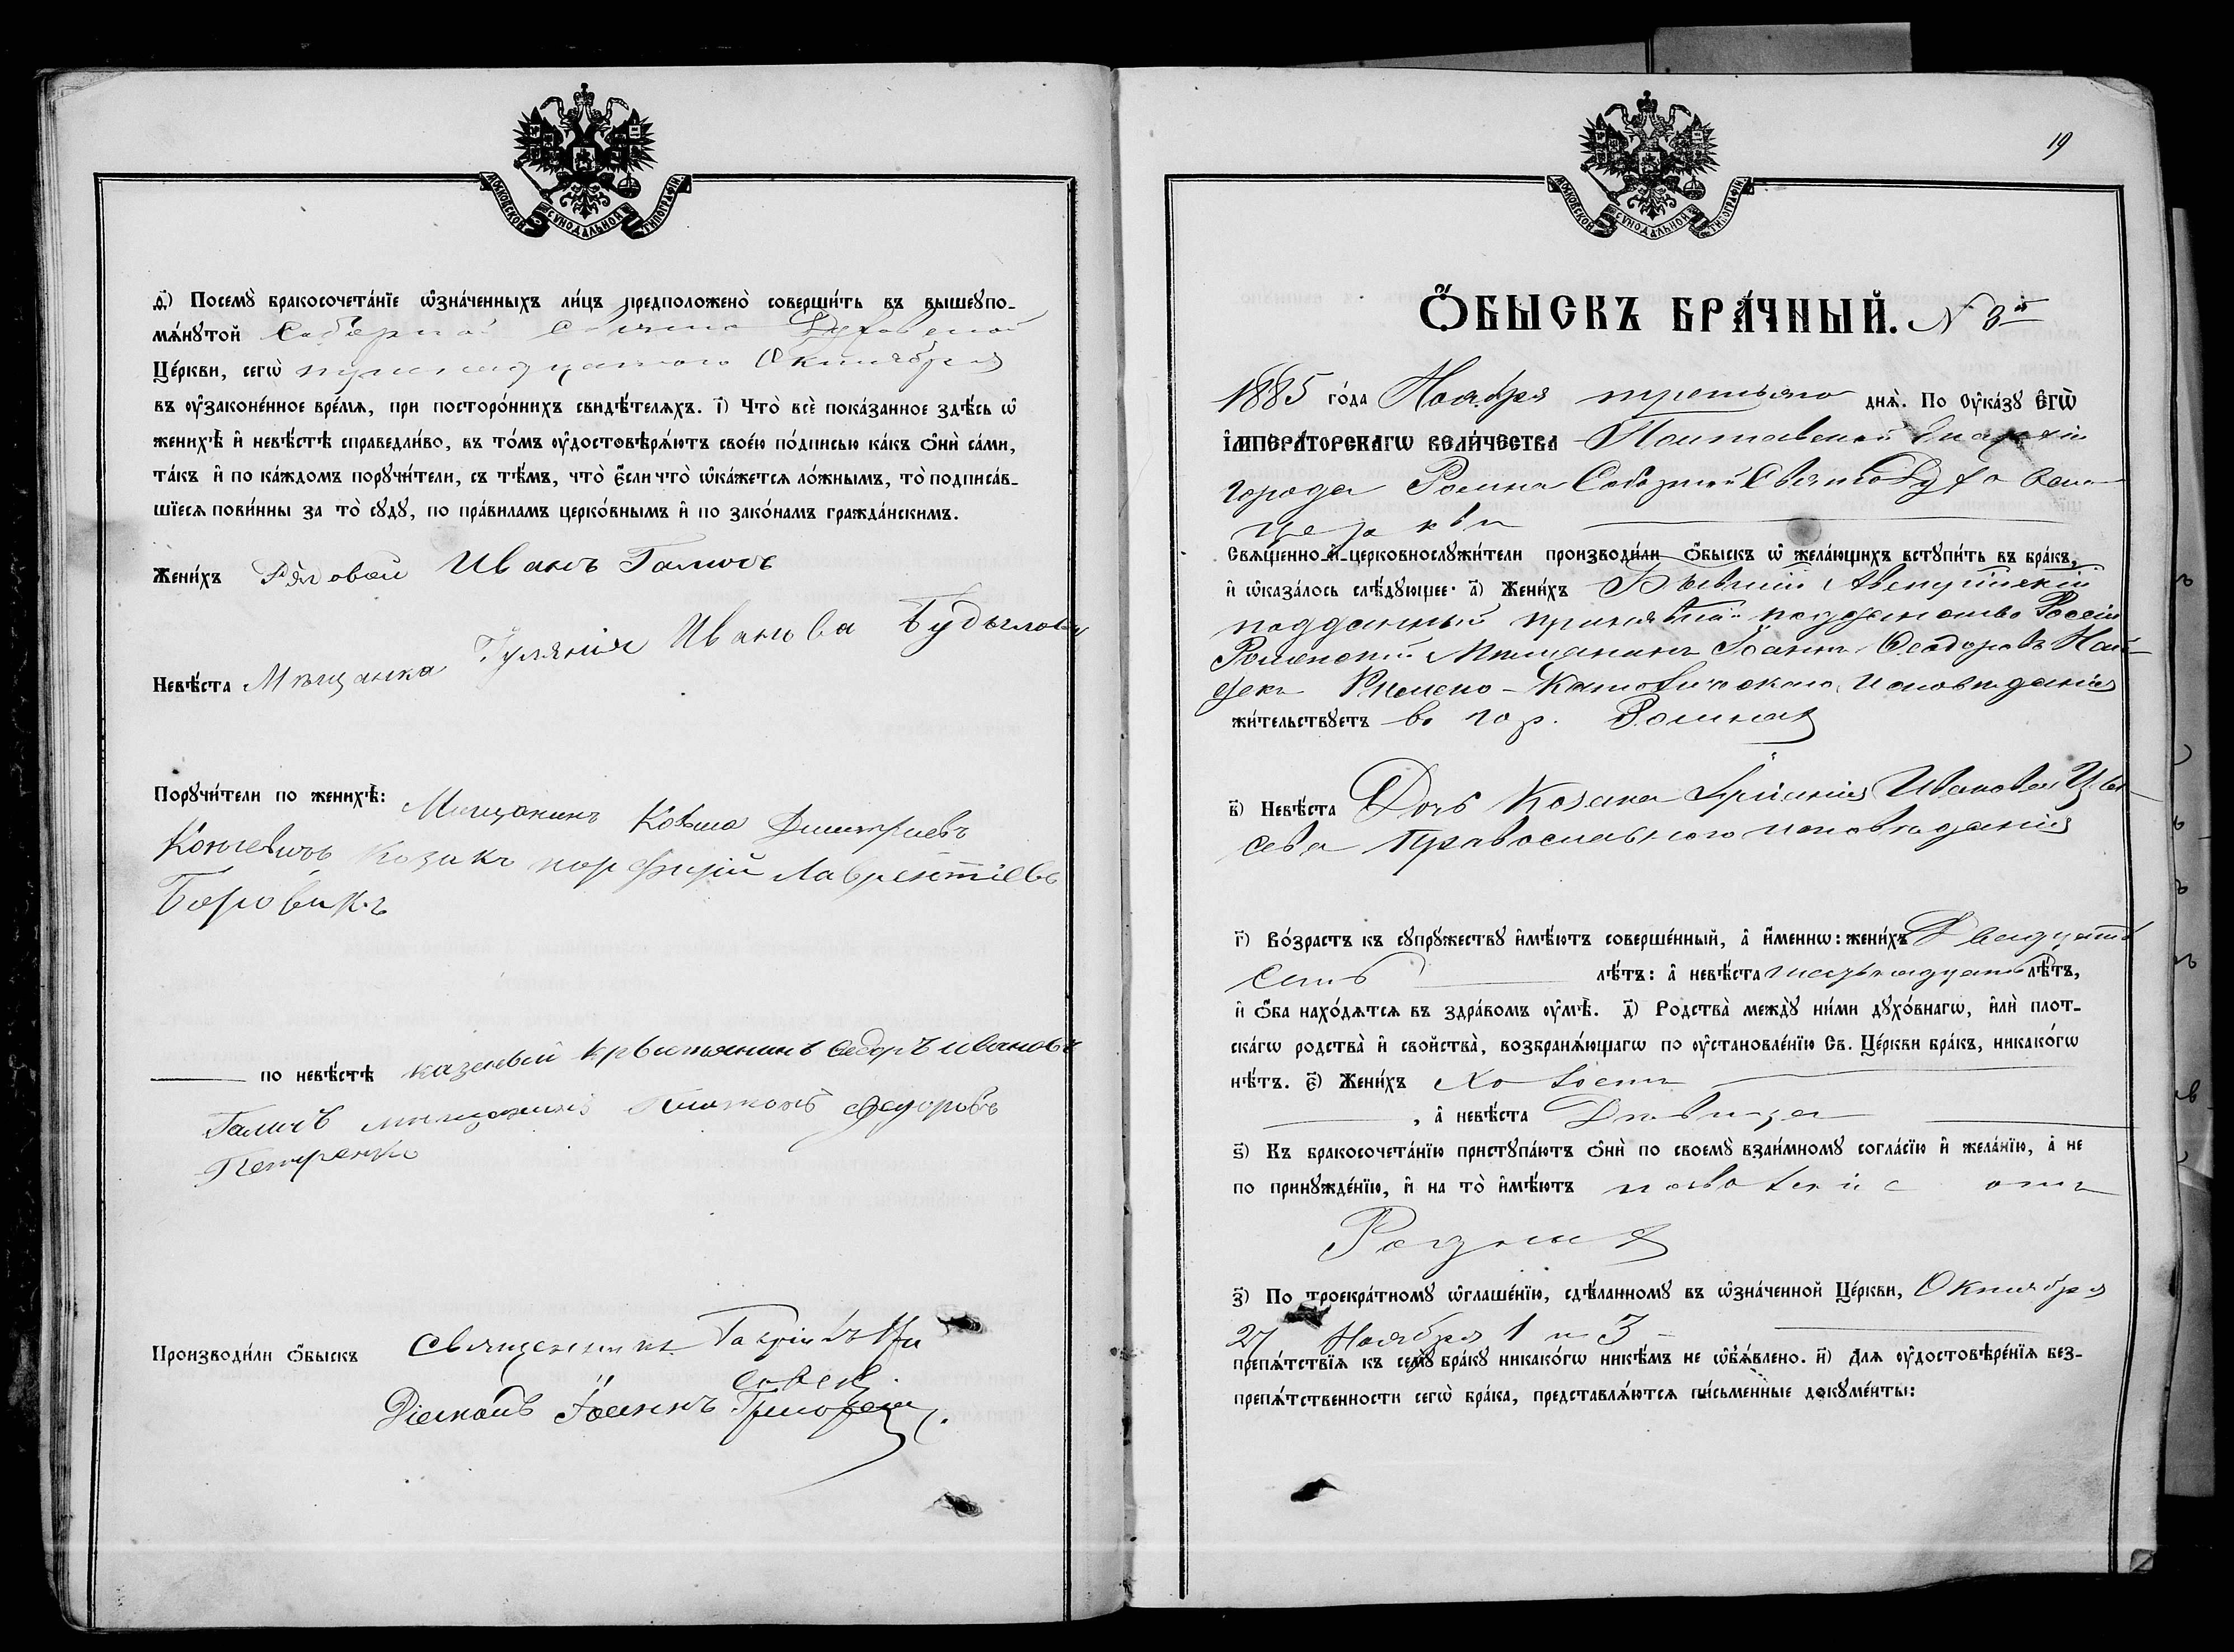 МОСКОВСКОЙ СѴНОДАЛЬНОЙ ТИПОГРАФІИ.
д҃) Посемꙋ̀ бракосочета́нїе ѡ҆зна́ченныхъ ли́цъ предположено̀ соверши́ть въ вышеꙋпо-
мѧ́нꙋтой Соборной Свято Духовской
Це́ркви, сегѡ̀ тринадцатого Октября
въ ᲂу҆законе́нное вре́мѧ, при посторо́ннихъ свидѣ́телѧхъ. і҃) Что̀ всѐ пока́занное здѣ́сь ѡ҆
женихѣ̀ и҆ невѣ́стѣ справедли́во, въ то́мъ ᲂу҆достовѣрѧ́ютъ свое́ю по́дписью ка́къ ѻ҆нѝ са́ми,
та́къ и҆ по ка́ждомъ порꙋчи́тели, съ тѣ́мъ, что̀ є҆́сли что̀ ѡ҆ка́жетсѧ ло́жнымъ, то̀ подписа́в-
шїесѧ пови́нны за то̀ сꙋдꙋ̀, по пра́виламъ церко́внымъ и҆ по зако́намъ гражда́нскимъ.
Жени́хъ Рядовой Иванъ Галичъ
Невѣ́ста Мѣщанка Иванова
Порꙋчи́тели по женихѣ̀: Мѣщанинъ Козьма Димитріевъ
козакъ порфирій Лаврентіевъ
Боровикъ
по невѣ́стѣ казеный крѣстьянинъ Федоръ ивановъ
Галичъ мѣщанинъ Платонъ Федоровъ
Петренко
Производи́ли ѻ҆́быскъ священникъ Гавріилъ
Діаконъ Іоаннъ
19
МОСКОВСКОЙ СѴНОДАЛЬНОЙ ТИПОГРАФІИ.
Ѻ҆́БЫСКЪ БРА́ЧНЫЙ. N 8й
1885 го́да Ноября третьяго днѧ̀. По ᲂу҆ка́зꙋ Є҆ГѠ̀
І҆МПЕРА́ТОРСКАГѠ ВЕЛИ́ЧЕСТВА Полтавской Епархіи
города Ромна Соборной Свято Духовской
церкви
Свѧще́нно-и҆-церковнослꙋжи́тели производи́ли ѻ҆́быскъ ѡ҆ жела́ющихъ встꙋпи́ть въ бра́къ,
и҆ ѡ҆каза́лось слѣ́дꙋющее: а҃) Жени́хъ Бывшій Австрійскій
подданный принявшій подданство Россіи
Роменскій Мѣщанинъ Іоаннъ Феодоровъ Най-
декъ Римско-Католическаго Исповѣданія
жи́тельствꙋетъ въ гор. Ромнахъ
в҃) Невѣ́ста Дочь Козака Іуліанія Иванова
Православного исповѣданія
г҃) Во́зрастъ къ сꙋпрꙋ́жествꙋ и҆мѣ́ютъ соверше́нный, а҆ и҆́меннѡ: жени́хъ Двадцать
семь лѣ́тъ: а҆ невѣ́ста шестьнадцать лѣ́тъ,
и҆ ѻ҆́ба нахо́дѧтсѧ въ здра́вомъ ᲂу҆мѣ̀. д҃) Родства̀ междꙋ̀ ни́ми дꙋхо́внагѡ, и҆лѝ плот-
ска́гѡ родства̀ и҆ свойства̀, возбранѧ́ющагѡ по ᲂу҆становле́нїю Св. Це́ркви бра́къ, никако́гѡ
нѣ́тъ. є҃) Жени́хъ Холостъ
, а҆ невѣ́ста Дѣвица
ѕ҃) Къ бракосочета́нїю пристꙋпа́ютъ ѻ҆нѝ по своемꙋ̀ взаи́мномꙋ согла́сїю и҆ жела́нїю, а҆ не
по принꙋжде́нїю, и҆ на то̀ и҆мѣ́ютъ позволеніе отъ
Родныхъ
з҃) По троекра́тномꙋ ѡ҆глаше́нїю, сдѣ́ланномꙋ въ ѡ҆зна́ченной Це́ркви, Октября
27 Ноября 1 и 3
препѧ́тствїѧ къ семꙋ̀ бра́кꙋ никако́гѡ никѣ́мъ не ѡ҆б̾ѧ́влено. и҃) Длѧ ᲂу҆достовѣре́нїѧ без-
препѧ́тственности сегѡ̀ бра́ка, представлѧ́ютсѧ пи́сьменные докꙋме́нты: